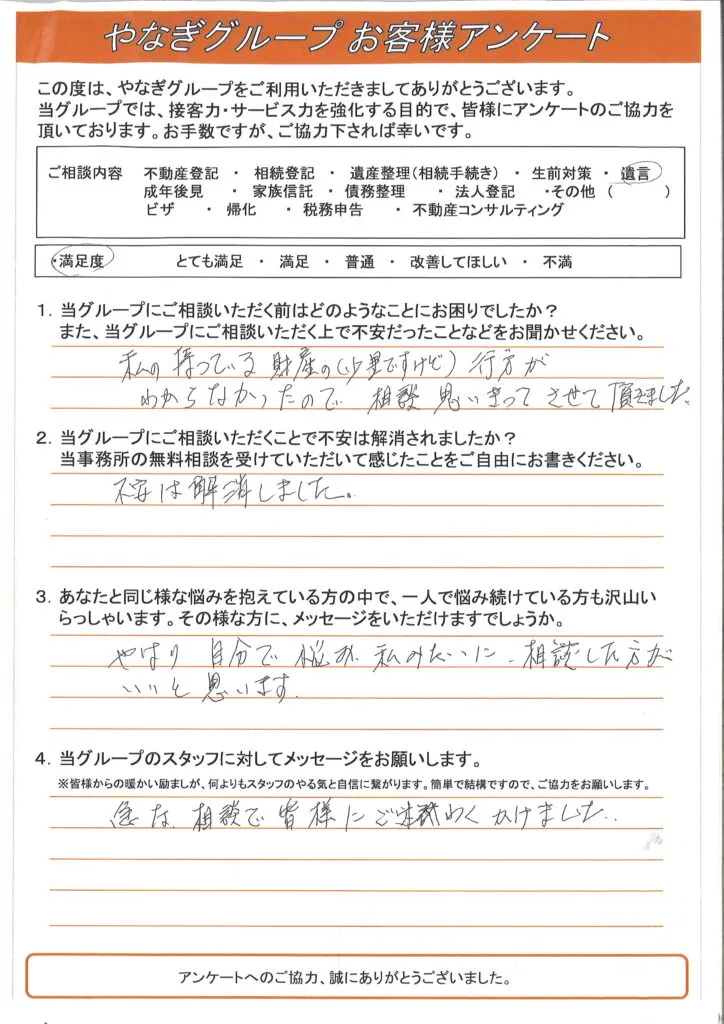 やなぎグループ お客様アンケート
この度は、やなぎグループをご利用いただきましてありがとうございます。
当グループでは、接客力・サービス力を強化する目的で、皆様にアンケートのご協力を
頂いております。お手数ですが、ご協力下されば幸いです。
ご相談内容 不動産登記 ・ 相続登記 ・ 遺産整理(相続手続き) ・ 生前対策 ・ 遺言
成年後見 ・ 家族信託 ・ 債務整理 ・ 法人登記 ・その他 ( )
ビザ ・ 帰化 ・ 税務申告 ・ 不動産コンサルティング
・満足度 とても満足 ・ 満足 ・ 普通 ・ 改善してほしい ・ 不満
1. 当グループにご相談いただく前はどのようなことにお困りでしたか?
また、当グループにご相談いただく上で不安だったことなどをお聞かせください。
私の持っている財産の(少里ですけど)行方が
わからなかったので 相談 思いきって させて頂きました
2. 当グループにご相談いただくことで不安は解消されましたか?
当事務所の無料相談を受けていただいて感じたことをご自由にお書きください。
不安は解消しました。
3. あなたと同じ様な悩みを抱えている方の中で、一人で悩み続けている方も沢山い
らっしゃいます。その様な方に、メッセージをいただけますでしょうか。
やはり 自分で 悩まず 私みたいに、相談した方が
いいと思います
4. 当グループのスタッフに対してメッセージをお願いします。
※皆様からの暖かい励ましが、何よりもスタッフのやる気と自信に繋がります。簡単で結構ですので、ご協力をお願いします。
急な 相談で 皆様に かけました..
アンケートへのご協力、誠にありがとうございました。